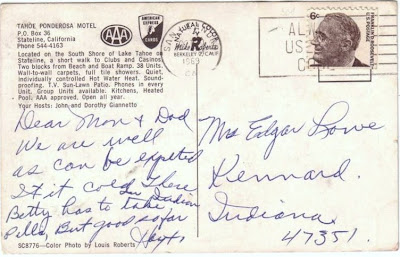 TAHOE PONDEROSA MOTEL
P.O. Box 36
Stateline, California
Phone 544-4163
AAA
AMERICAN EXPRESS
Located on the South Shore of Lake Tahoe on
Stateline, a short walk to Clubs and Casinos.
Two blocks from Beach and Boat Ramp. 38 Units.
Wall-to-wall carpets, full tile showers. Quiet,
Individually controlled Hot Water Heat. Sound-
proofing. T.V. Sun-Lawn Patio. Phones in every
Unit. Group Units available. Kitchens, Heated
Pool. AAA approved. Open all year.
Your Hosts: John and Dorothy Giannetto
NATURAL COLOR
by
Mike Roberts
BERKELEY 2, CALIF.
6¢
Dear Mom & Dad
We are well
as can be expected
Is it cold There
Betty has to take
Pills, But good so far
Hoyt,
Mrs Edgar Lowe
Kennard,
Indiana
47351.
SC8776—Color Photo by Louis Roberts